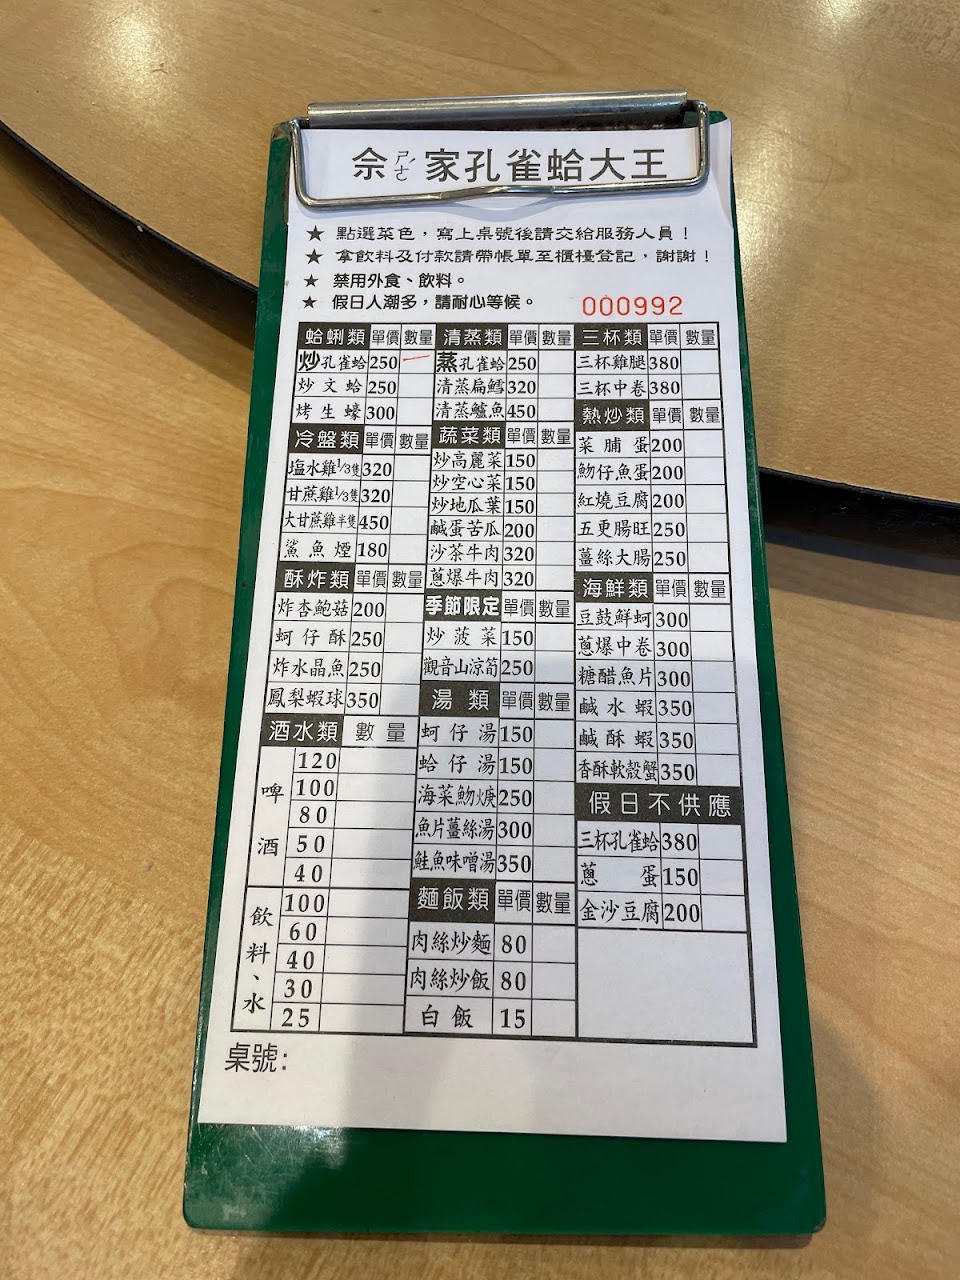 佘ㄕㄜˊ家孔雀蛤大王
★ 點選菜色，寫上桌號後請交給服務人員！
★ 拿飲料及付款請帶帳單至櫃檯登記，謝謝！
★ 禁用外食、飲料。
★ 假日人潮多，請耐心等候。
000992
蛤蜊類 單價 數量
炒孔雀蛤 250
炒文蛤 250
烤生蠔 300
冷盤類 單價 數量
塩水雞1/3隻 320
甘蔗雞1/3隻 320
大甘蔗雞半隻 450
鯊魚煙 180
酥炸類 單價 數量
炸杏鮑菇 200
蚵仔酥 250
炸水晶魚 250
鳳梨蝦球 350
酒水類 數量
啤酒
120
100
80
50
40
飲料、水
100
60
40
30
25
清蒸類 單價 數量
蒸孔雀蛤 250
清蒸扁鱈 320
清蒸鱸魚 450
蔬菜類 單價 數量
炒高麗菜 150
炒空心菜 150
炒地瓜葉 150
鹹蛋苦瓜 200
沙茶牛肉 320
蔥爆牛肉 320
季節限定 單價 數量
炒菠菜 150
觀音山涼筍 250
湯類 單價 數量
蚵仔湯 150
蛤仔湯 150
海菜魩焿 250
魚片薑絲湯 300
鮭魚味噌湯 350
麵飯類 單價 數量
肉絲炒麵 80
肉絲炒飯 80
白飯 15
三杯類 單價 數量
三杯雞腿 380
三杯中卷 380
熱炒類 單價 數量
菜脯蛋 200
魩仔魚蛋 200
紅燒豆腐 200
五更腸旺 250
薑絲大腸 250
海鮮類 單價 數量
豆鼓鮮蚵 300
蔥爆中卷 300
糖醋魚片 300
鹹水蝦 350
鹹酥蝦 350
香酥軟殼蟹 350
假日不供應
三杯孔雀蛤 380
蔥蛋 150
金沙豆腐 200
桌號：